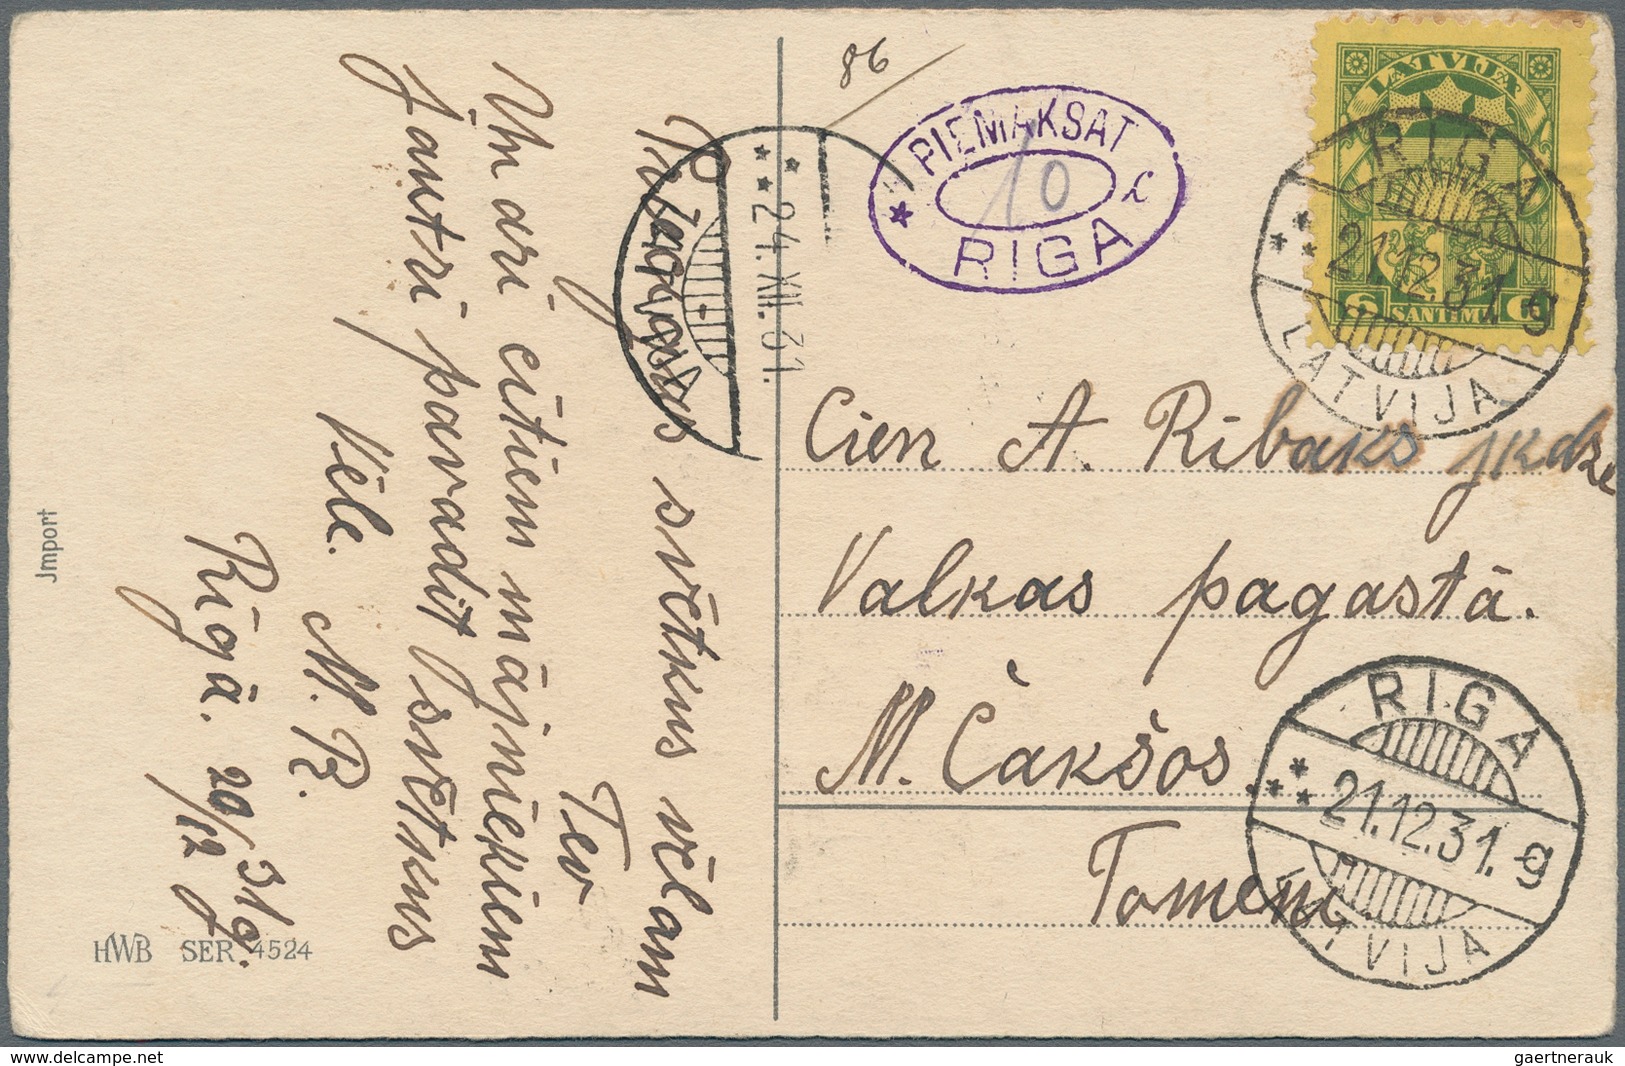 Priecīgus svētkus vēlam
Tev
Un arī citiem mājniekiem
jautri pavadīt svētkus
Vēle.
M. R.
Rīgā. 20/12 31 g.
Jmport
HWB SER 4524
86
PIEMAKSAT
10
RIGA
LATVIJA
6 SANTIMI 6
RIGA
21.12.31. g
LATVIJA
24.XII.31.
Cien A. Ribaks jkdze
Valkas pagastā.
M. Čakšos.
Tomēni.
RIGA
21.12.31. g
LATVIJA
delcampe.net
gaertnerauk